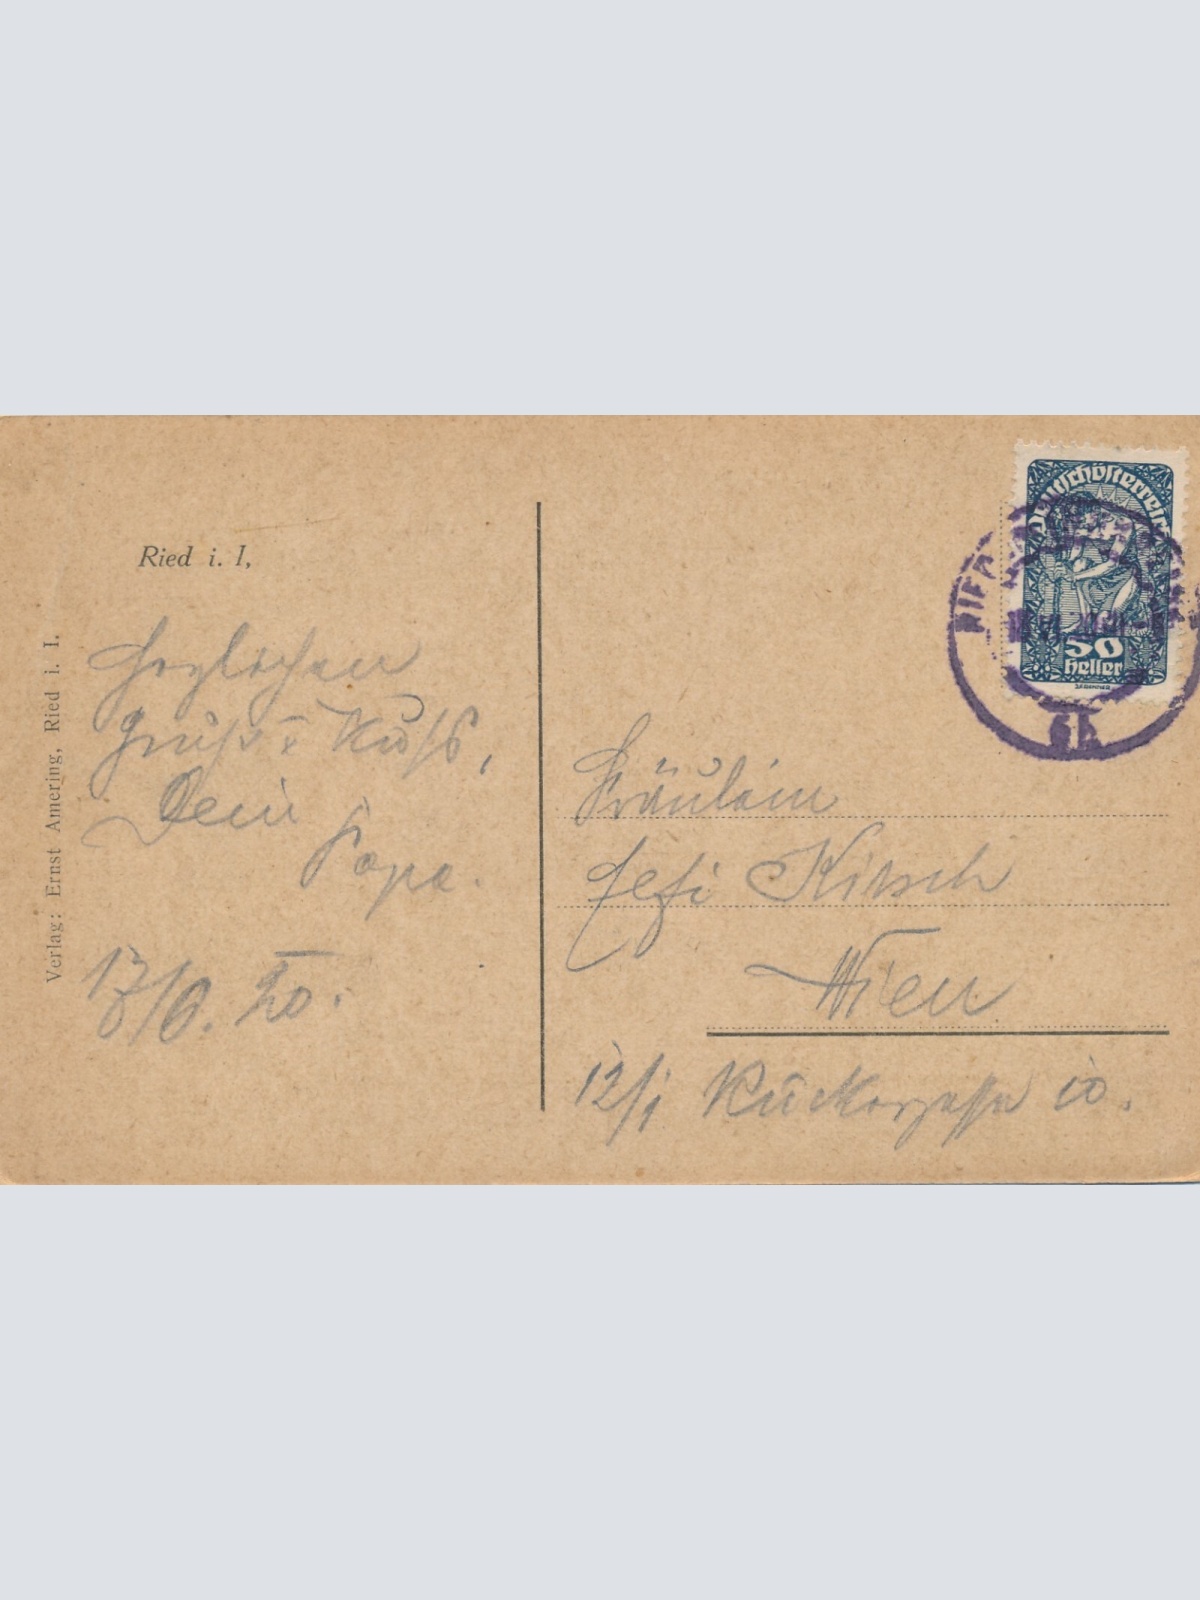 Ried i. I,
Herzlichen
Gruß u Kuß,
Dein
Papa.
17/6. 20.
Verlag: Ernst Amering, Ried i. I.
Deutschösterreich
50
heller
RIED
6b
Fräulein
Kirsch
Wien
12/1 10.